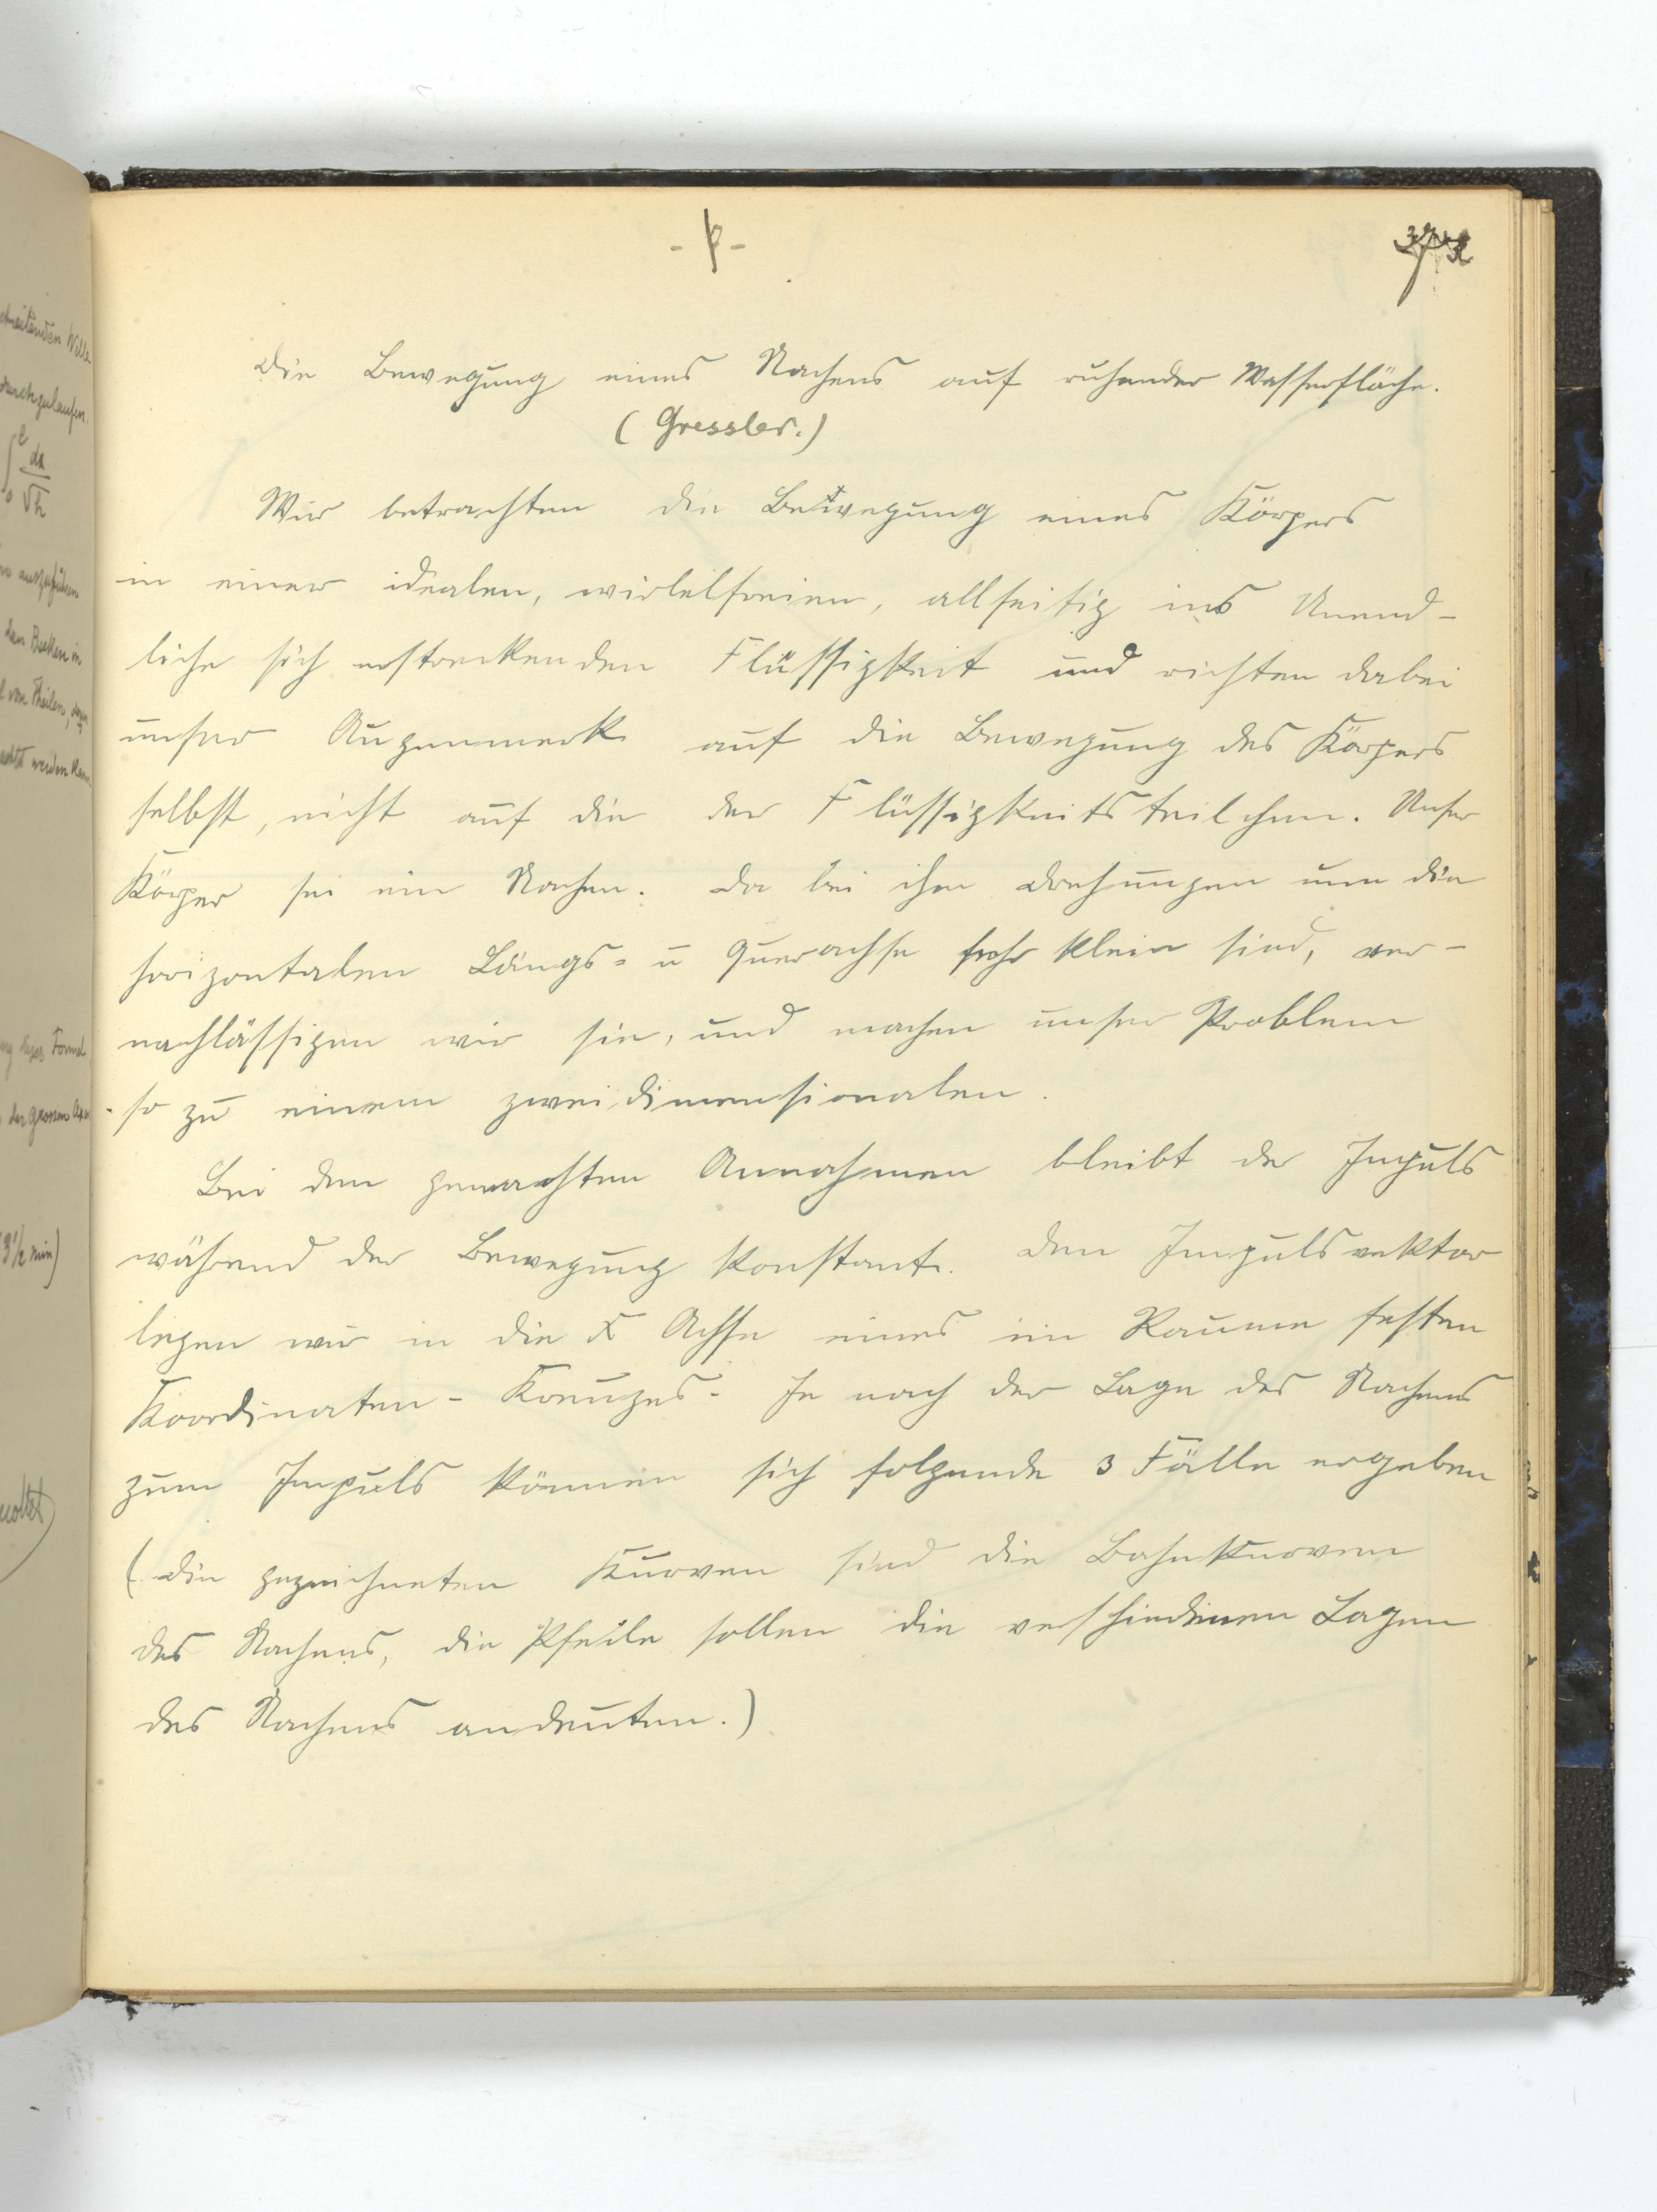 Die Bewegung eines Nachens auf ruhender Wasserfläche.
(Gressler.)
Wir betrachten die Bewegung eines Körpers
in einer idealen, wirbelfreien, allseitig ins Unend-
liche sich erstreckenden Flüssigkeit und richten dabei
unser Augenmerk auf die Bewegung des Körpers
selbst, nicht auf die der Flüssigkeitsteilchen. Unser
Körper sei ein Nachen. Da bei ihm Drehungen um die
horizontalen Längs- u Querachse sehr klein sind, ver-
nachlässigen wir sie, und machen unser Problem
so zu einem zweidimensionalen.
Bei den gemachten Annahmen bleibt der Impuls
während der Bewegung konstant. Den Impulsvektor
legen wir in die X Achse eines im Raume festen
Koordinaten-Kreuzes. Je nach der Lage des Nachens
zum Impuls können sich folgende 3 Fälle ergeben
(Die gezeichneten Kurven sind die Bahnkurven
des Nachens, die Pfeile sollen die verschiedenen Lagen
des Nachens andeuten.)